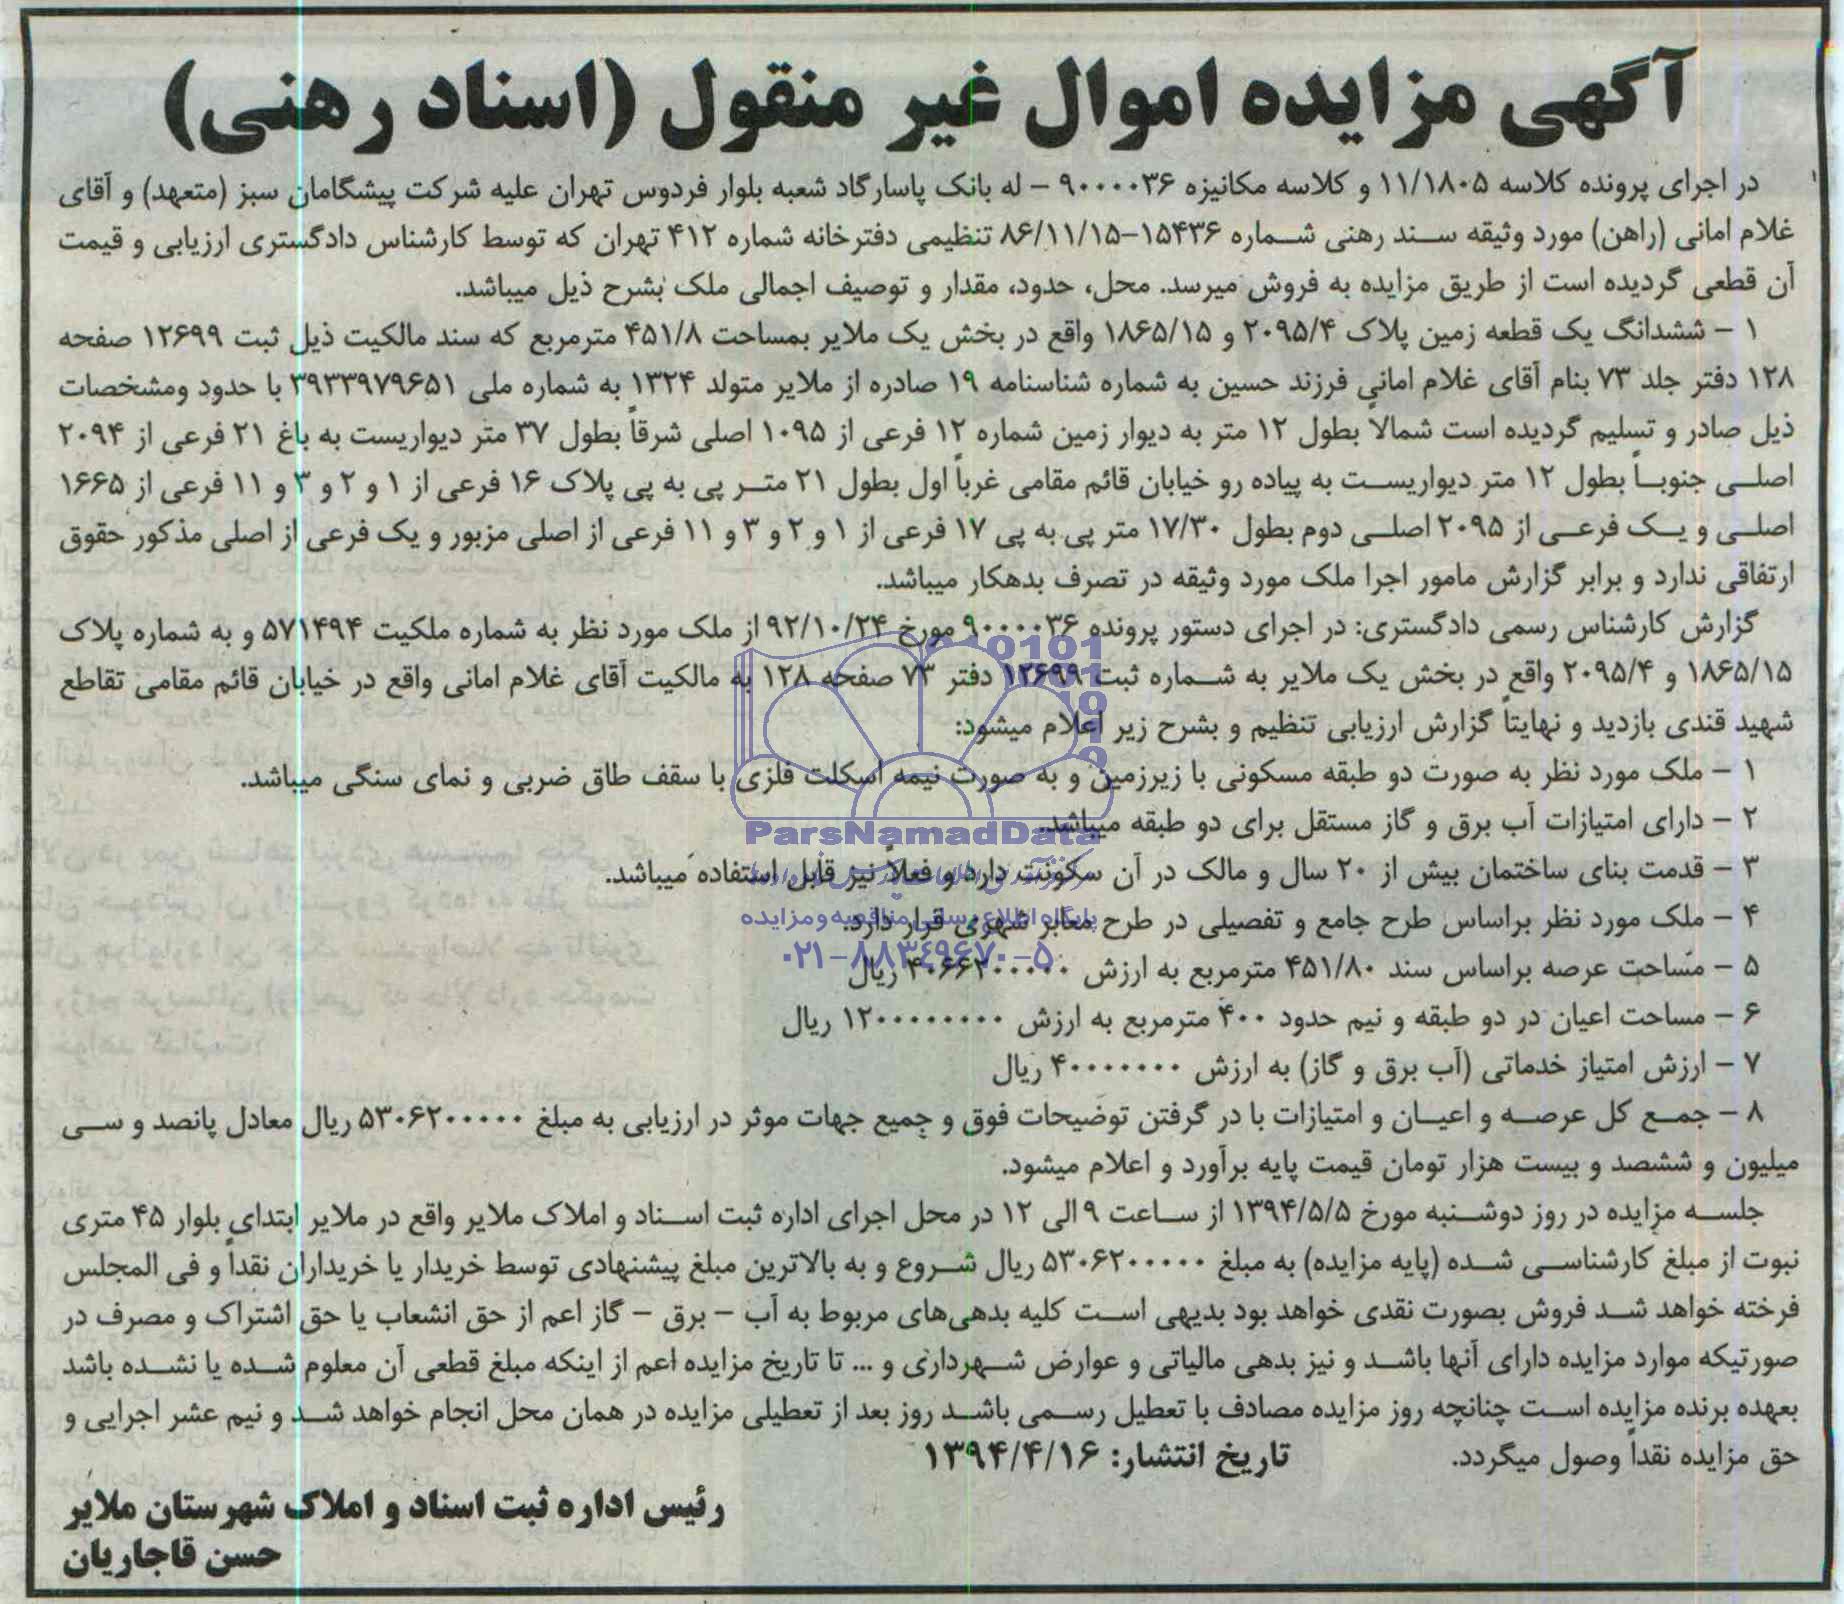 آگهی مزایده اموال غیر منقول (اسناد رهنی)
در اجرای پرونده کلاسه ۱۱/۱۸۰۵ و کلاسه مکانیزه ۹۰۰۰۰۳۶ – له بانک پاسارگاد شعبه بلوار فردوس تهران علیه شرکت پیشگامان سبز (متعهد) و آقای
غلام امانی (راهن) مورد وثیقه سند رهنی شماره ۱۵۴۳۶-۸۶/۱۱/۱۵ تنظیمی دفترخانه شماره ۴۱۲ تهران که توسط کارشناس دادگستری ارزیابی و قیمت
آن قطعی گردیده است از طریق مزایده به فروش میرسد. محل، حدود، مقدار و توصیف اجمالی ملک بشرح ذیل میباشد.
۱ – ششدانگ یک قطعه زمین پلاک ۲۰۹۵/۴ و ۱۸۶۵/۱۵ واقع در بخش یک ملایر بمساحت ۴۵۱/۸ مترمربع که سند مالکیت ذیل ثبت ۱۲۶۹۹ صفحه
۱۲۸ دفتر جلد ۷۳ بنام آقای غلام امانی فرزند حسین به شماره شناسنامه ۱۹ صادره از ملایر متولد ۱۳۲۴ به شماره ملی ۳۹۳۳۹۷۹۶۵۱ با حدود ومشخصات
ذیل صادر و تسلیم گردیده است شمالاً بطول ۱۲ متر به دیوار زمین شماره ۱۲ فرعی از ۱۰۹۵ اصلی شرقاً بطول ۳۷ متر دیواریست به باغ ۲۱ فرعی از ۲۰۹۴
اصلی جنوباً بطول ۱۲ متر دیواریست به پیاده رو خیابان قائم مقامی غرباً اول بطول ۲۱ متر پی به پی پلاک ۱۶ فرعی از ۱ و ۲ و ۳ و ۱۱ فرعی از ۱۶۶۵
اصلی و یک فرعی از ۲۰۹۵ اصلی دوم بطول ۱۷/۳۰ متر پی به پی ۱۷ فرعی از ۱ و ۲ و ۳ و ۱۱ فرعی از اصلی مزبور و یک فرعی از اصلی مذکور حقوق
ارتفاقی ندارد و برابر گزارش مامور اجرا ملک مورد وثیقه در تصرف بدهکار میباشد.
گزارش کارشناس رسمی دادگستری: در اجرای دستور پرونده ۹۰۰۰۰۳۶ مورخ ۹۲/۱۰/۲۴ از ملک مورد نظر به شماره ملکیت ۵۷۱۴۹۴ و به شماره پلاک
۱۸۶۵/۱۵ و ۲۰۹۵/۴ واقع در بخش یک ملایر به شماره ثبت ۱۲۶۹۹ دفتر ۷۳ صفحه ۱۲۸ به مالکیت آقای غلام امانی واقع در خیابان قائم مقامی تقاطع
شهید قندی بازدید و نهایتاً گزارش ارزیابی تنظیم و بشرح زیر اعلام میشود:
۱ – ملک مورد نظر به صورت دو طبقه مسکونی با زیرزمین و به صورت نیمه اسکلت فلزی با سقف طاق ضربی و نمای سنگی میباشد.
۲ – دارای امتیازات آب برق و گاز مستقل برای دو طبقه میباشد.
ParsNamadData
۳ – قدمت بنای ساختمان بیش از ۲۰ سال و مالک در آن سکونت دارد و فعلاً نیز قابل استفاده میباشد.
۴ – ملک مورد نظر براساس طرح جامع و تفصیلی در طرح معابر شهری قرار دارد.
پایگاه اطلاع رسانی مناقصه و مزایده
۰۲۱-۸۸۳۴۹۶۷۰-۵
۵ – مساحت عرصه براساس سند ۴۵۱/۸۰ مترمربع به ارزش ۴۰۶۶۲۰۰۰۰۰ ریال
۶ – مساحت اعیان در دو طبقه و نیم حدود ۴۰۰ مترمربع به ارزش ۱۲۰۰۰۰۰۰۰۰ ریال
۷ – ارزش امتیاز خدماتی (آب برق و گاز) به ارزش ۴۰۰۰۰۰۰۰ ریال
۸ – جمع کل عرصه و اعیان و امتیازات با در گرفتن توضیحات فوق و جمیع جهات موثر در ارزیابی به مبلغ ۵۳۰۶۲۰۰۰۰۰ ریال معادل پانصد و سی
میلیون و ششصد و بیست هزار تومان قیمت پایه برآورد و اعلام میشود.
جلسه مزایده در روز دوشنبه مورخ ۱۳۹۴/۵/۵ از ساعت ۹ الی ۱۲ در محل اجرای اداره ثبت اسناد و املاک ملایر واقع در ملایر ابتدای بلوار ۴۵ متری
نبوت از مبلغ کارشناسی شده (پایه مزایده) به مبلغ ۵۳۰۶۲۰۰۰۰۰ ریال شروع و به بالاترین مبلغ پیشنهادی توسط خریدار یا خریداران نقداً و فی المجلس
فرخته خواهد شد فروش بصورت نقدی خواهد بود بدیهی است کلیه بدهی‌های مربوط به آب – برق – گاز اعم از حق انشعاب یا حق اشتراک و مصرف در
صورتیکه موارد مزایده دارای آنها باشد و نیز بدهی مالیاتی و عوارض شهرداری و ... تا تاریخ مزایده اعم از اینکه مبلغ قطعی آن معلوم شده یا نشده باشد
بعهده برنده مزایده است چنانچه روز مزایده مصادف با تعطیل رسمی باشد روز بعد از تعطیلی مزایده در همان محل انجام خواهد شد و نیم عشر اجرایی و
حق مزایده نقداً وصول میگردد. تاریخ انتشار: ۱۳۹۴/۴/۱۶
رئیس اداره ثبت اسناد و املاک شهرستان ملایر
حسن قاجاریان